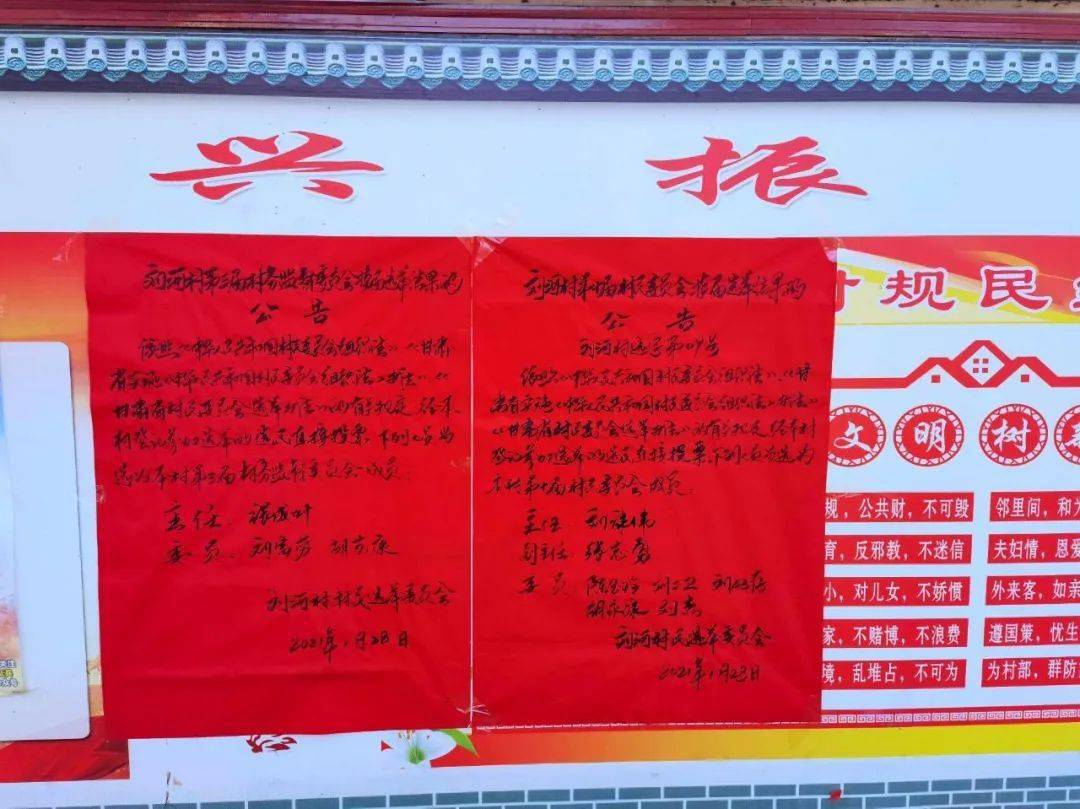 兴 振
刘河村第三届村务监督委员会换届选举结果的
公告
依照《中华人民共和国村民委员会组织法》《甘肃
省实施《中华人民共和国村民委员会组织法》办法》《
甘肃省村民委员会选举办法》的有关规定 经本
村登记参加选举的选民直接投票,下列人员当
选为本村第三届村务监督委员会成员:
主任:
委员:
刘河村村民选举委员会
2021年1月28日
刘河村第十届村民委员会换届选举结果的
公告
刘河村选字第09号
依照《中华人民共和国村民委员会组织法》、《甘
肃省实施《中华人民共和国村民委员会组织法》办法》
《甘肃省村民委员会选举办法》的有关规定 经本村
登记参加选举的选民直接投票,下列人员当选为
本村第十届村民委员会成员:
主任:
副主任:
委员
刘河村民选举委员会
2021年1月28日
规民
文明树
规,公共财,不可毁
育,反邪教,不迷信
小,对儿女,不娇惯
家,不赌博,不浪费
境,乱堆占,不可为
邻里间,和为
夫妇情,恩爱
外来客,如亲
遵国策,优生
为村部,群防